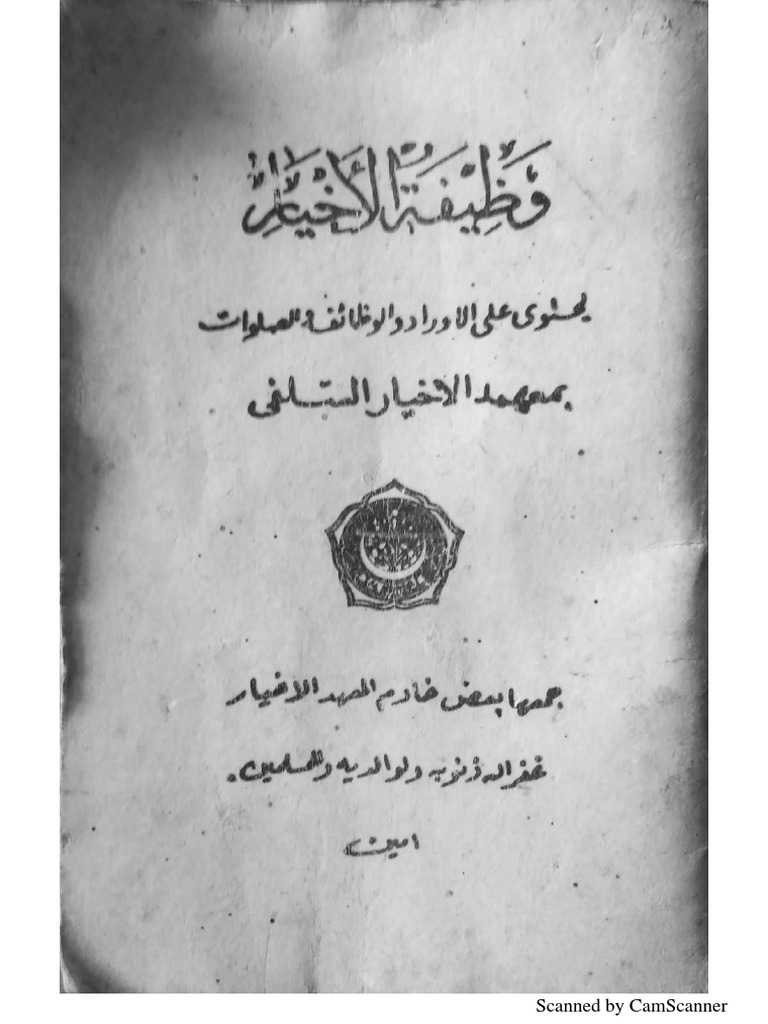 وَظِيْفَةُ الْأَخْيَارِ
يحتوى على الاوراد والوظائف والصلوات
بمعهد الاخيار السلفى
جمعها بعض خادم المعهد الاخيار
غفر الله ذنوبه ولوالديه وللمسلمين.
امين
Scanned by CamScanner